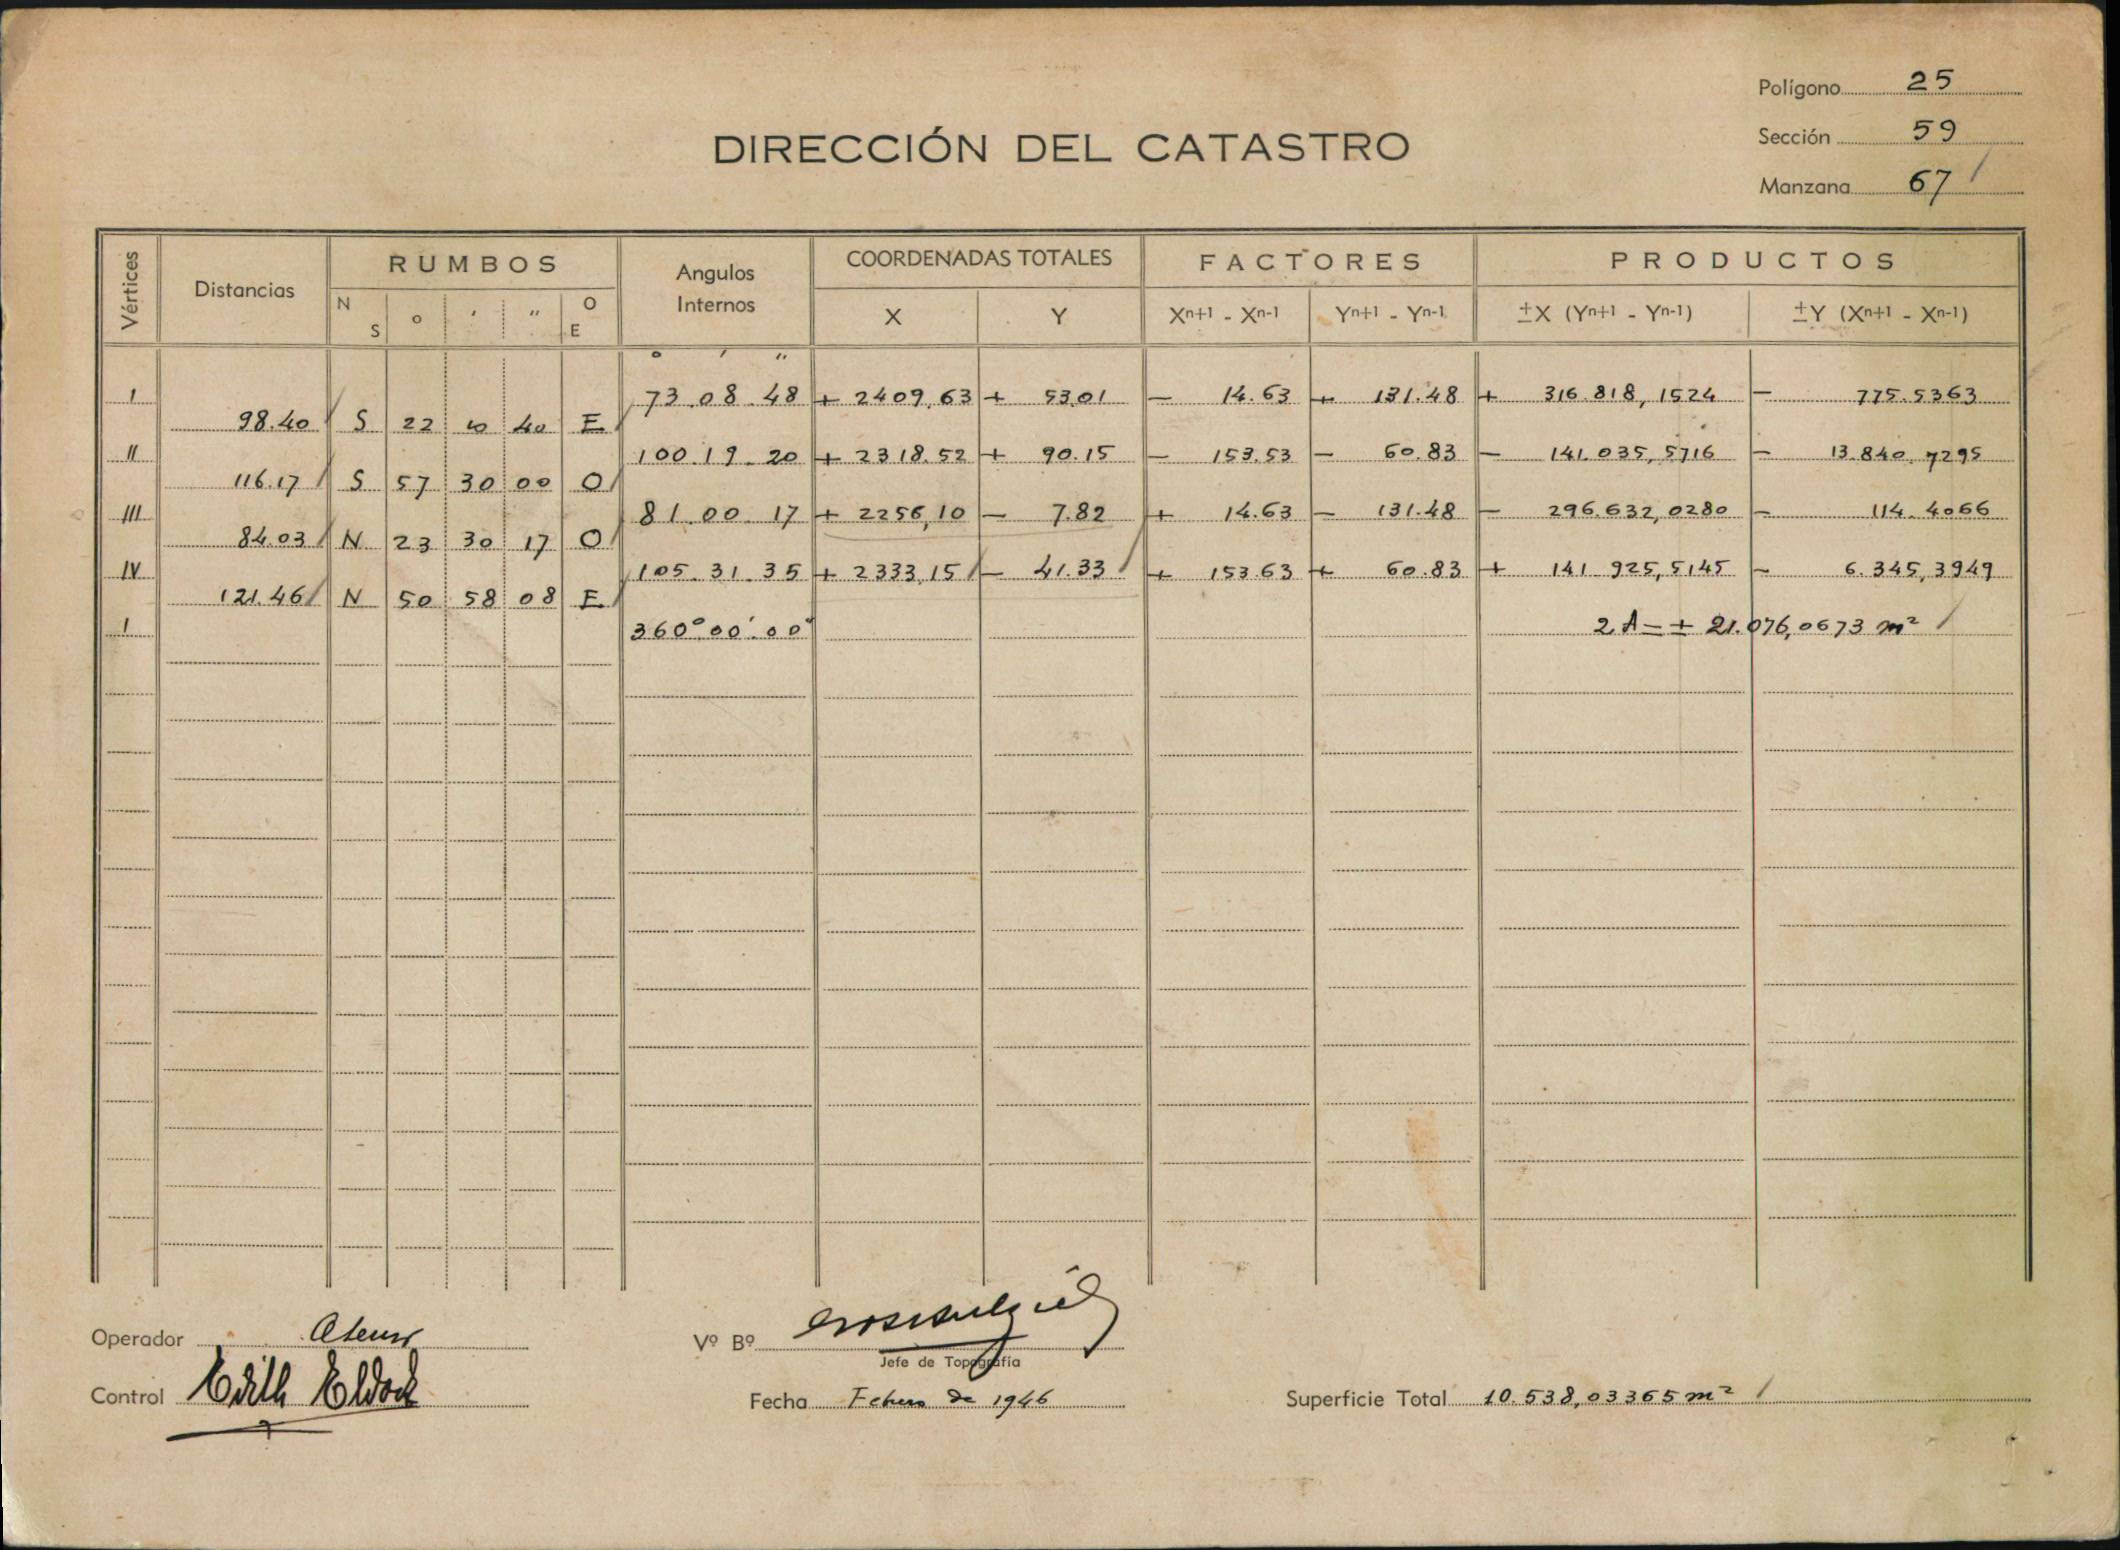 Polígono 25
Sección 59
Manzana 67
DIRECCIÓN DEL CATASTRO
Vértices Distancias RUMBOS Angulos Internos COORDENADAS TOTALES FACTORES PRODUCTOS
N S o ' " O E X Y Xn+1 - Xn-1 Yn+1 - Yn-1 ±X (Yn+1 - Yn-1) ±Y (Xn+1 - Xn-1)
o ' "
I 73.08.48 + 2409,63 + 53,01 - 14.63 + 131.48 + 316.818,1524 - 775.5363
98.40 S 22 10 40 E
II 100.19.20 + 2318.52 + 90.15 - 153.53 - 60.83 - 141.035,5716 - 13.840,7295
116.17 S 57 30 00 O
III 81.00.17 + 2256,10 - 7.82 + 14.63 - 131.48 - 296.632,0280 - 114.4066
84.03 N 23 30 17 O
IV 105.31.35 + 2333,15 - 41.33 + 153.63 + 60.83 + 141 925,5145 - 6.345,3949
121.46 N 50 58 08 E
I 360°00'.00" 2A = ± 21.076,0673 m²
Operador
Control Edith
Vº Bº
Jefe de Topografía
Fecha Febrero de 1946
Superficie Total 10.538,03365 m²